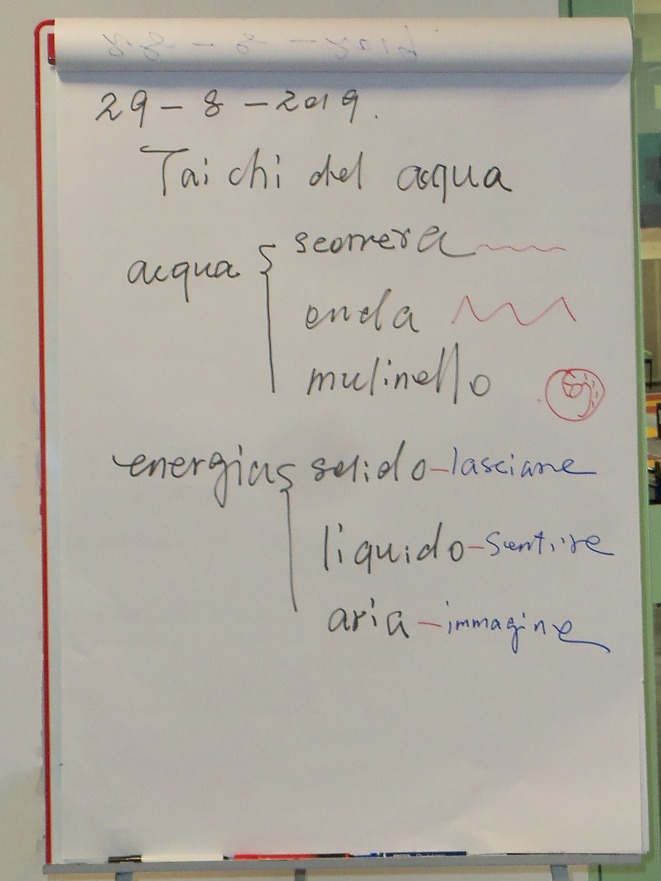 29-8-2019.
Tai chi del acqua
acqua { scorrera
onda
mulinello
energia { solido - lasciane
liquido - sentire
aria - immagine